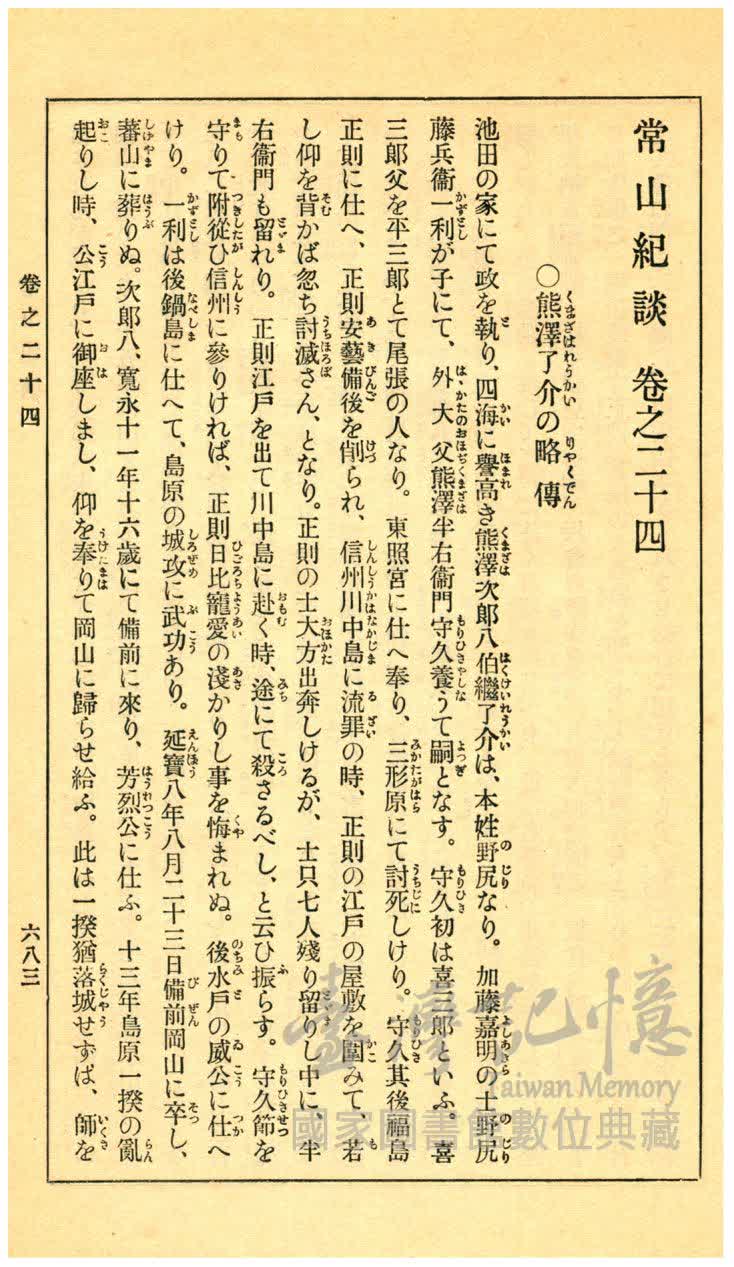 常山紀談　卷之二十四
〇熊澤了介の略傳
池田の家にて政を執り、四海に譽高き熊澤次郎八伯繼了介は、本姓野尻なり。加藤嘉明の士野尻
藤兵衞一利が子にて、外大父熊澤半右衞門守久養うて嗣となす。守久初は喜三郎といふ。喜
三郎父を平三郎とて尾張の人なり。東照宮に仕へ奉り、三形原にて討死しけり。守久其後福島
正則に仕へ、正則安藝備後を削られ、信州川中島に流罪の時、正則の江戸の屋敷を圍みて、若
し仰を背かば忽ち討滅さん、となり。正則の士大方出奔しけるが、士只七人殘り留りし中に、半
右衞門も留れり。正則江戸を出て川中島に赴く時、途にて殺さるべし、と云ひ振らす。守久節を
守りて附從ひ信州に參りければ、正則日比寵愛の淺かりし事を悔まれぬ。後水戸の威公に仕へ
けり。一利は後鍋島に仕へて、島原の城攻に武功あり。延寶八年八月二十三日備前岡山に卒し、
蕃山に葬りぬ。次郎八、寛永十一年十六歲にて備前に來り、芳烈公に仕ふ。十三年島原一揆の亂
起りし時、公江戸に御座しまし、仰を奉りて岡山に歸らせ給ふ。此は一揆猶落城せずば、師を
卷之二十四
六八三
臺灣記憶
Taiwan Memory
國家圖書館數位典藏